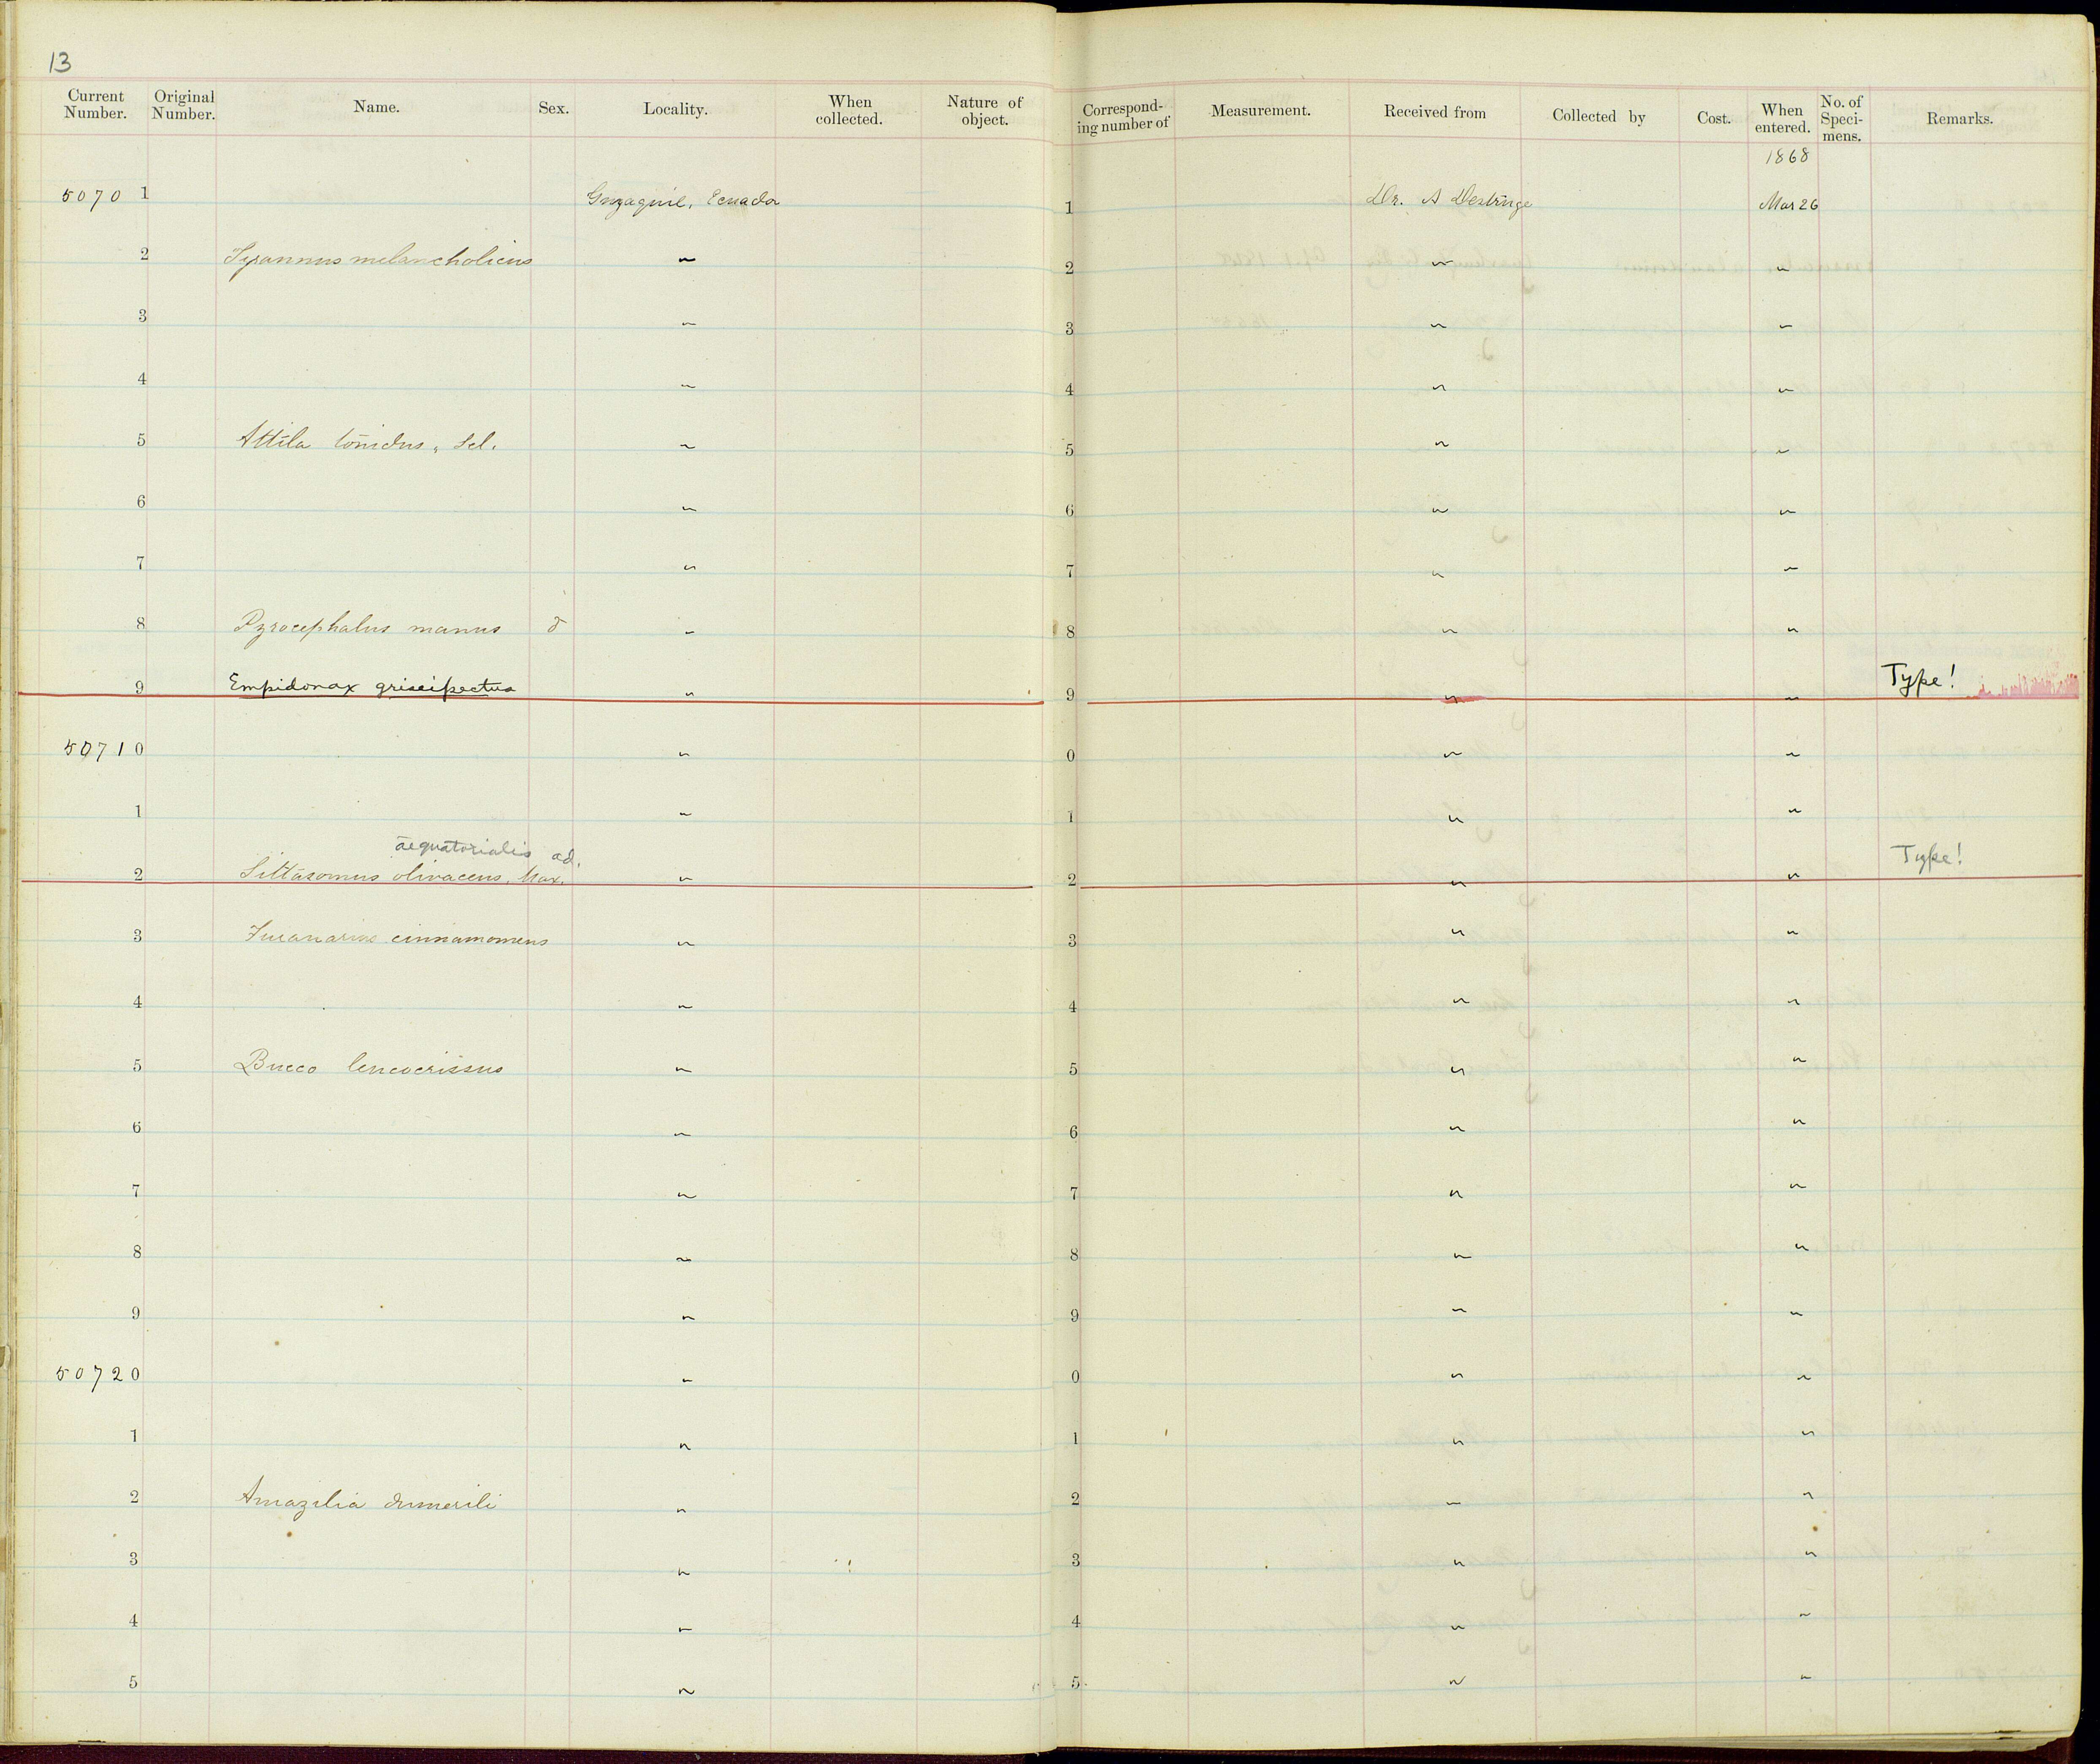 13
Current Number. Original Number. Name. Sex. Locality. When collected. Nature of object. Corresponding number of Measurement. Received from Collected by Cost. When entered. No. of Specimens. Remarks.
1868
5070 1 Guyaquil, Ecuador 1 Dr. A Destruge Mar 26
2 Tyrannus melancholicus " 2 " "
3 " 3 " "
4 " 4 " "
5 Attila torridus, Scl. " 5 " "
6 " 6 " "
7 " 7 " "
8 Pyrocephalus nanus ♂ " 8 " "
9 Empidonax griseipectus " 9 " " Type!
5071 0 " 0 " "
1 " 1 " "
aequatorialis ad.
2 Sittasomus olivaceus, Max. " 2 " " Type!
3 Furnarius cinnamomeus " 3 " "
4 " 4 " "
5 Bucco leucocrissus " 5 " "
6 " 6 " "
7 " 7 " "
8 " 8 " "
9 " 9 " "
5072 0 " 0 " "
1 " 1 " "
2 Amazilia dumerili " 2 " "
3 " 3 " "
4 " 4 " "
5 " 5 " "